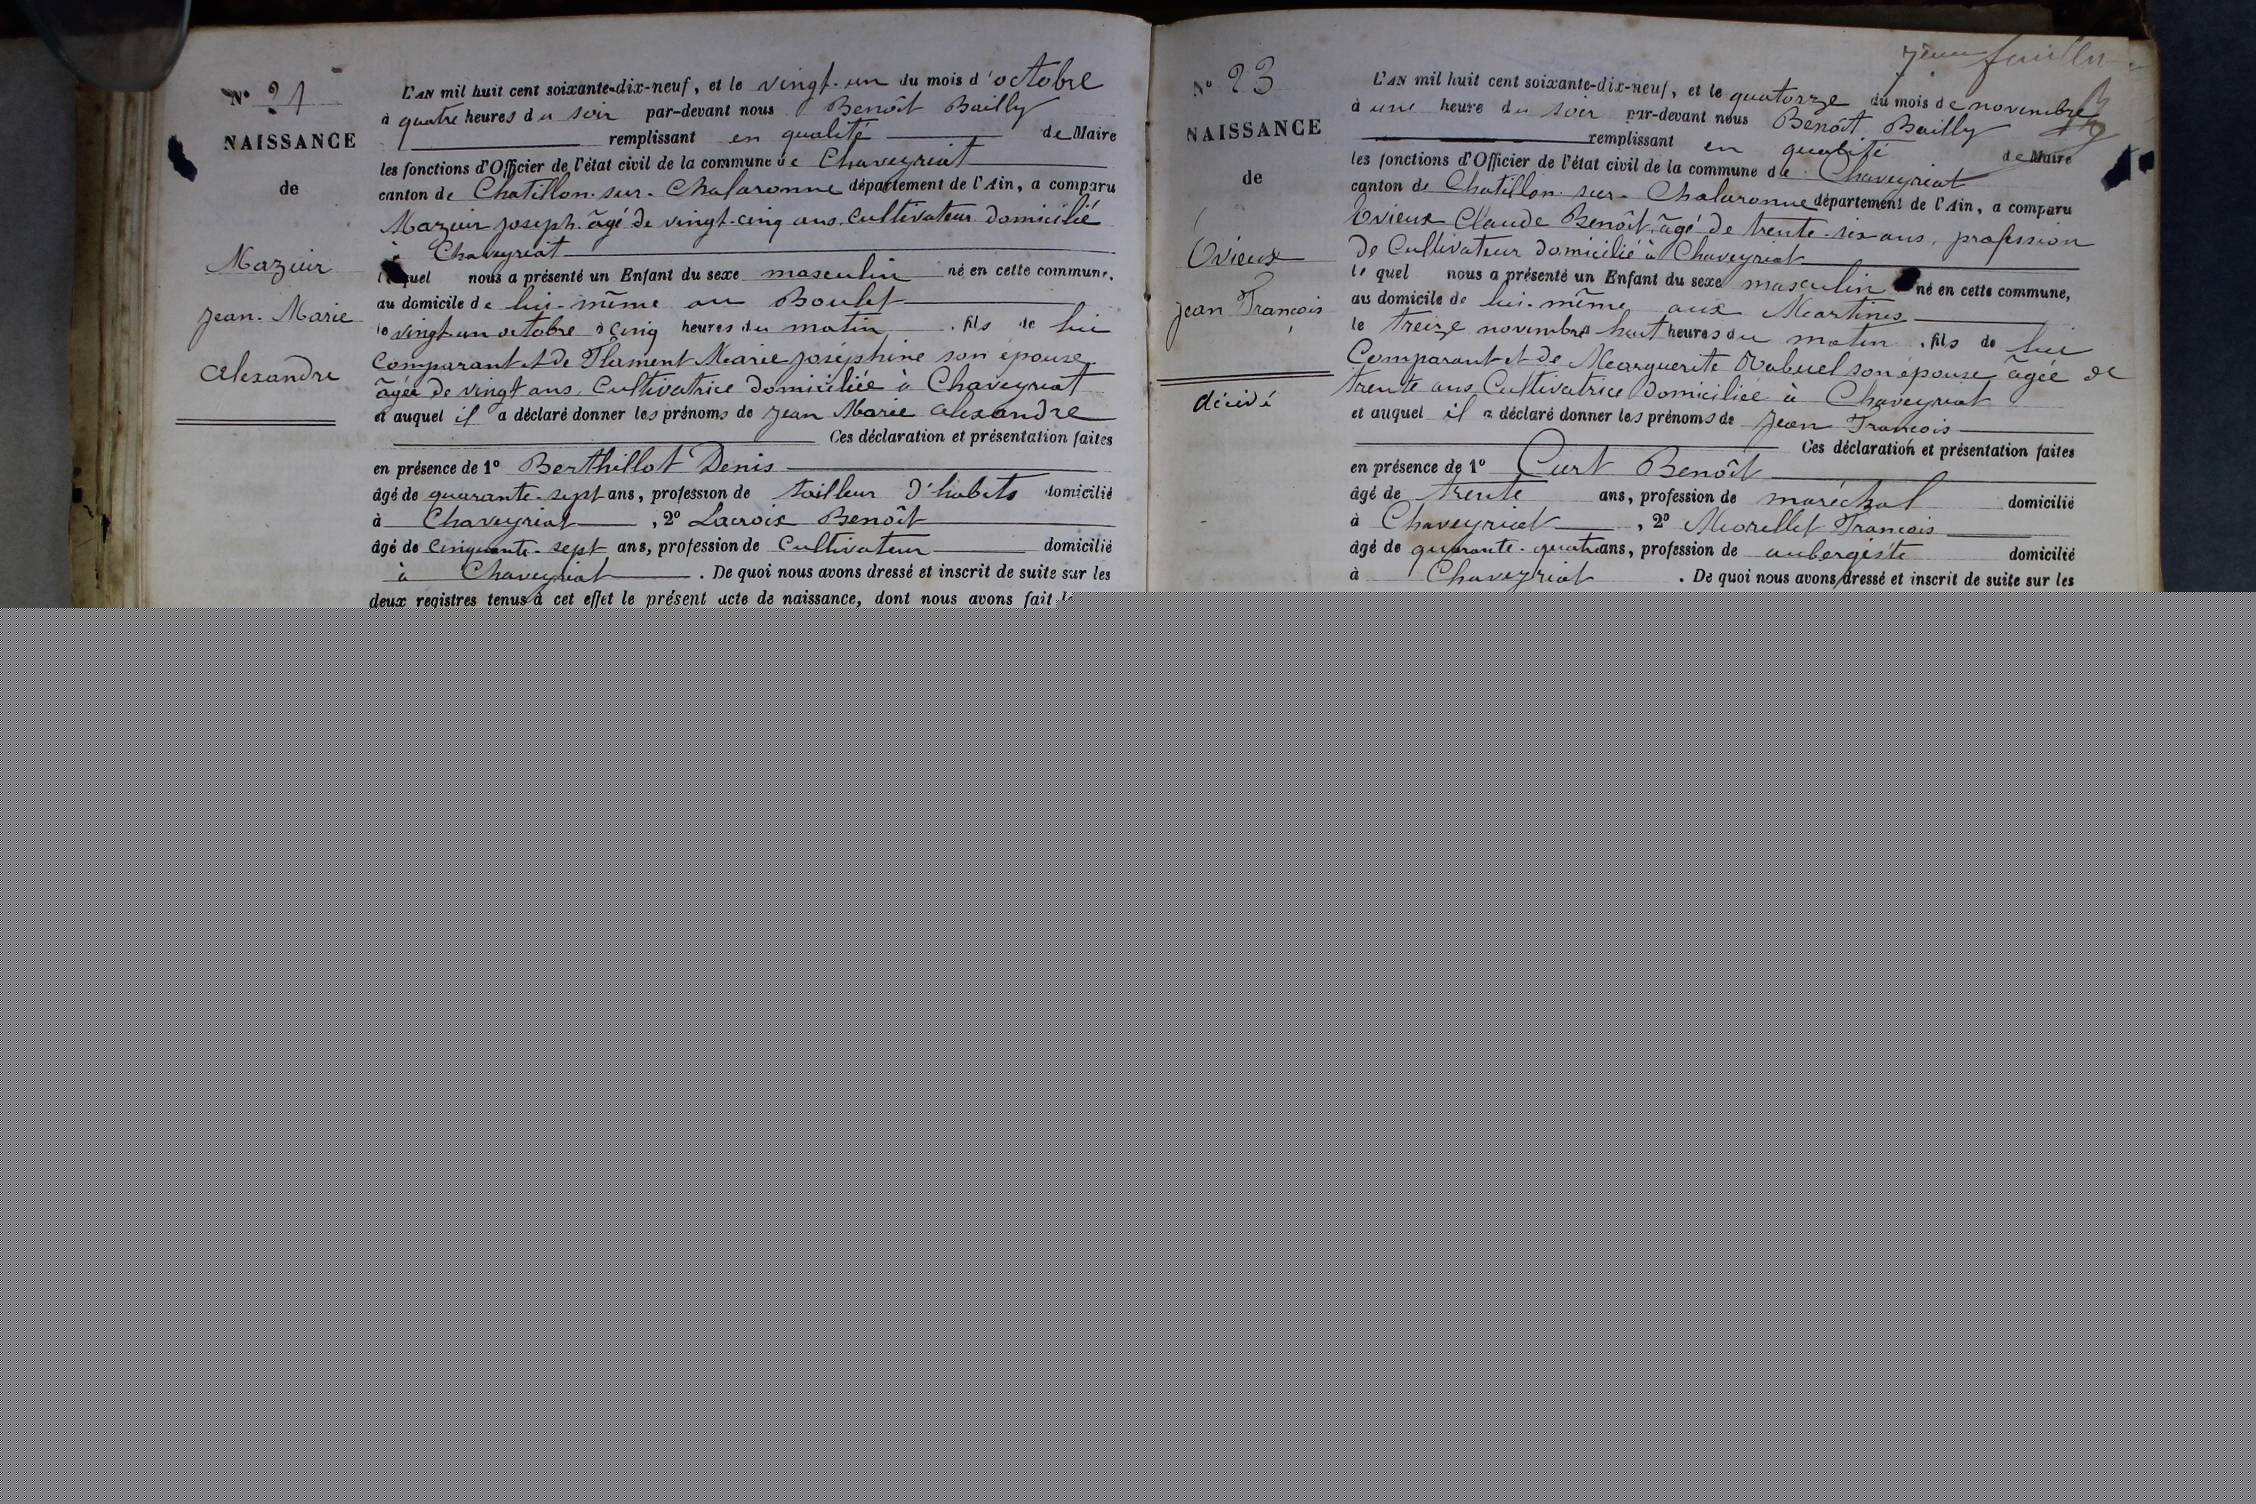 N° 21
NAISSANCE
de
Mazuir
Jean-Marie
Alexandre
L'AN mil huit cent soixante-dix-neuf, et le vingt-un du mois d'octobre
à quatre heures du soir par-devant nous Benoît Bailly
remplissant en qualité de Maire
les fonctions d'Officier de l'état civil de la commune de Chaveyriat
canton de Chatillon-sur-Chalaronne département de l'Ain, a comparu
Mazuir Joseph âgé de vingt-cinq ans Cultivateur domicilié
à Chaveyriat
lequel nous a présenté un Enfant du sexe masculin né en cette commune,
au domicile de lui-même au Boulet
le vingt un octobre à cinq heures du matin, fils de lui
Comparant et de Flament Marie Joséphine son épouse
âgée de vingt ans, Cultivatrice domiciliée à Chaveyriat
et auquel il a déclaré donner les prénoms de Jean Marie Alexandre
Ces déclaration et présentation faites
en présence de 1° Berthillot Denis
âgé de quarante-sept ans, profession de tailleur d'habits domicilié
à Chaveyriat, 2° Lacroix Benoît
âgé de cinquante-sept ans, profession de Cultivateur domicilié
à Chaveyriat. De quoi nous avons dressé et inscrit de suite sur les
deux registres tenus à cet effet le présent acte de naissance, dont nous avons fait
7eme feuillet
N° 23
NAISSANCE
de
Ovieux
Jean François
décédé
L'AN mil huit cent soixante-dix-neuf, et le quatorze du mois de novembre
à une heure du soir par-devant nous Benoît Bailly
remplissant en qualité de Maire
les fonctions d'Officier de l'état civil de la commune de Chaveyriat
canton de Chatillon-sur-Chalaronne département de l'Ain, a comparu
Ovieux Claude Benoît, âgé de trente-six ans, profession
de Cultivateur domicilié à Chaveyriat
lequel nous a présenté un Enfant du sexe masculin né en cette commune,
au domicile de lui-même aux Martines
le treize novembre huit heures du matin, fils de lui
Comparant et de Marguerite Rabuel son épouse âgée de
trente ans Cultivatrice domiciliée à Chaveyriat
et auquel il a déclaré donner les prénoms de Jean François
Ces déclaration et présentation faites
en présence de 1° Curt Benoît
âgé de trente ans, profession de maréchal domicilié
à Chaveyriat, 2° Morellet François
âgé de quarante-quatre ans, profession de aubergiste domicilié
à Chaveyriat. De quoi nous avons dressé et inscrit de suite sur les